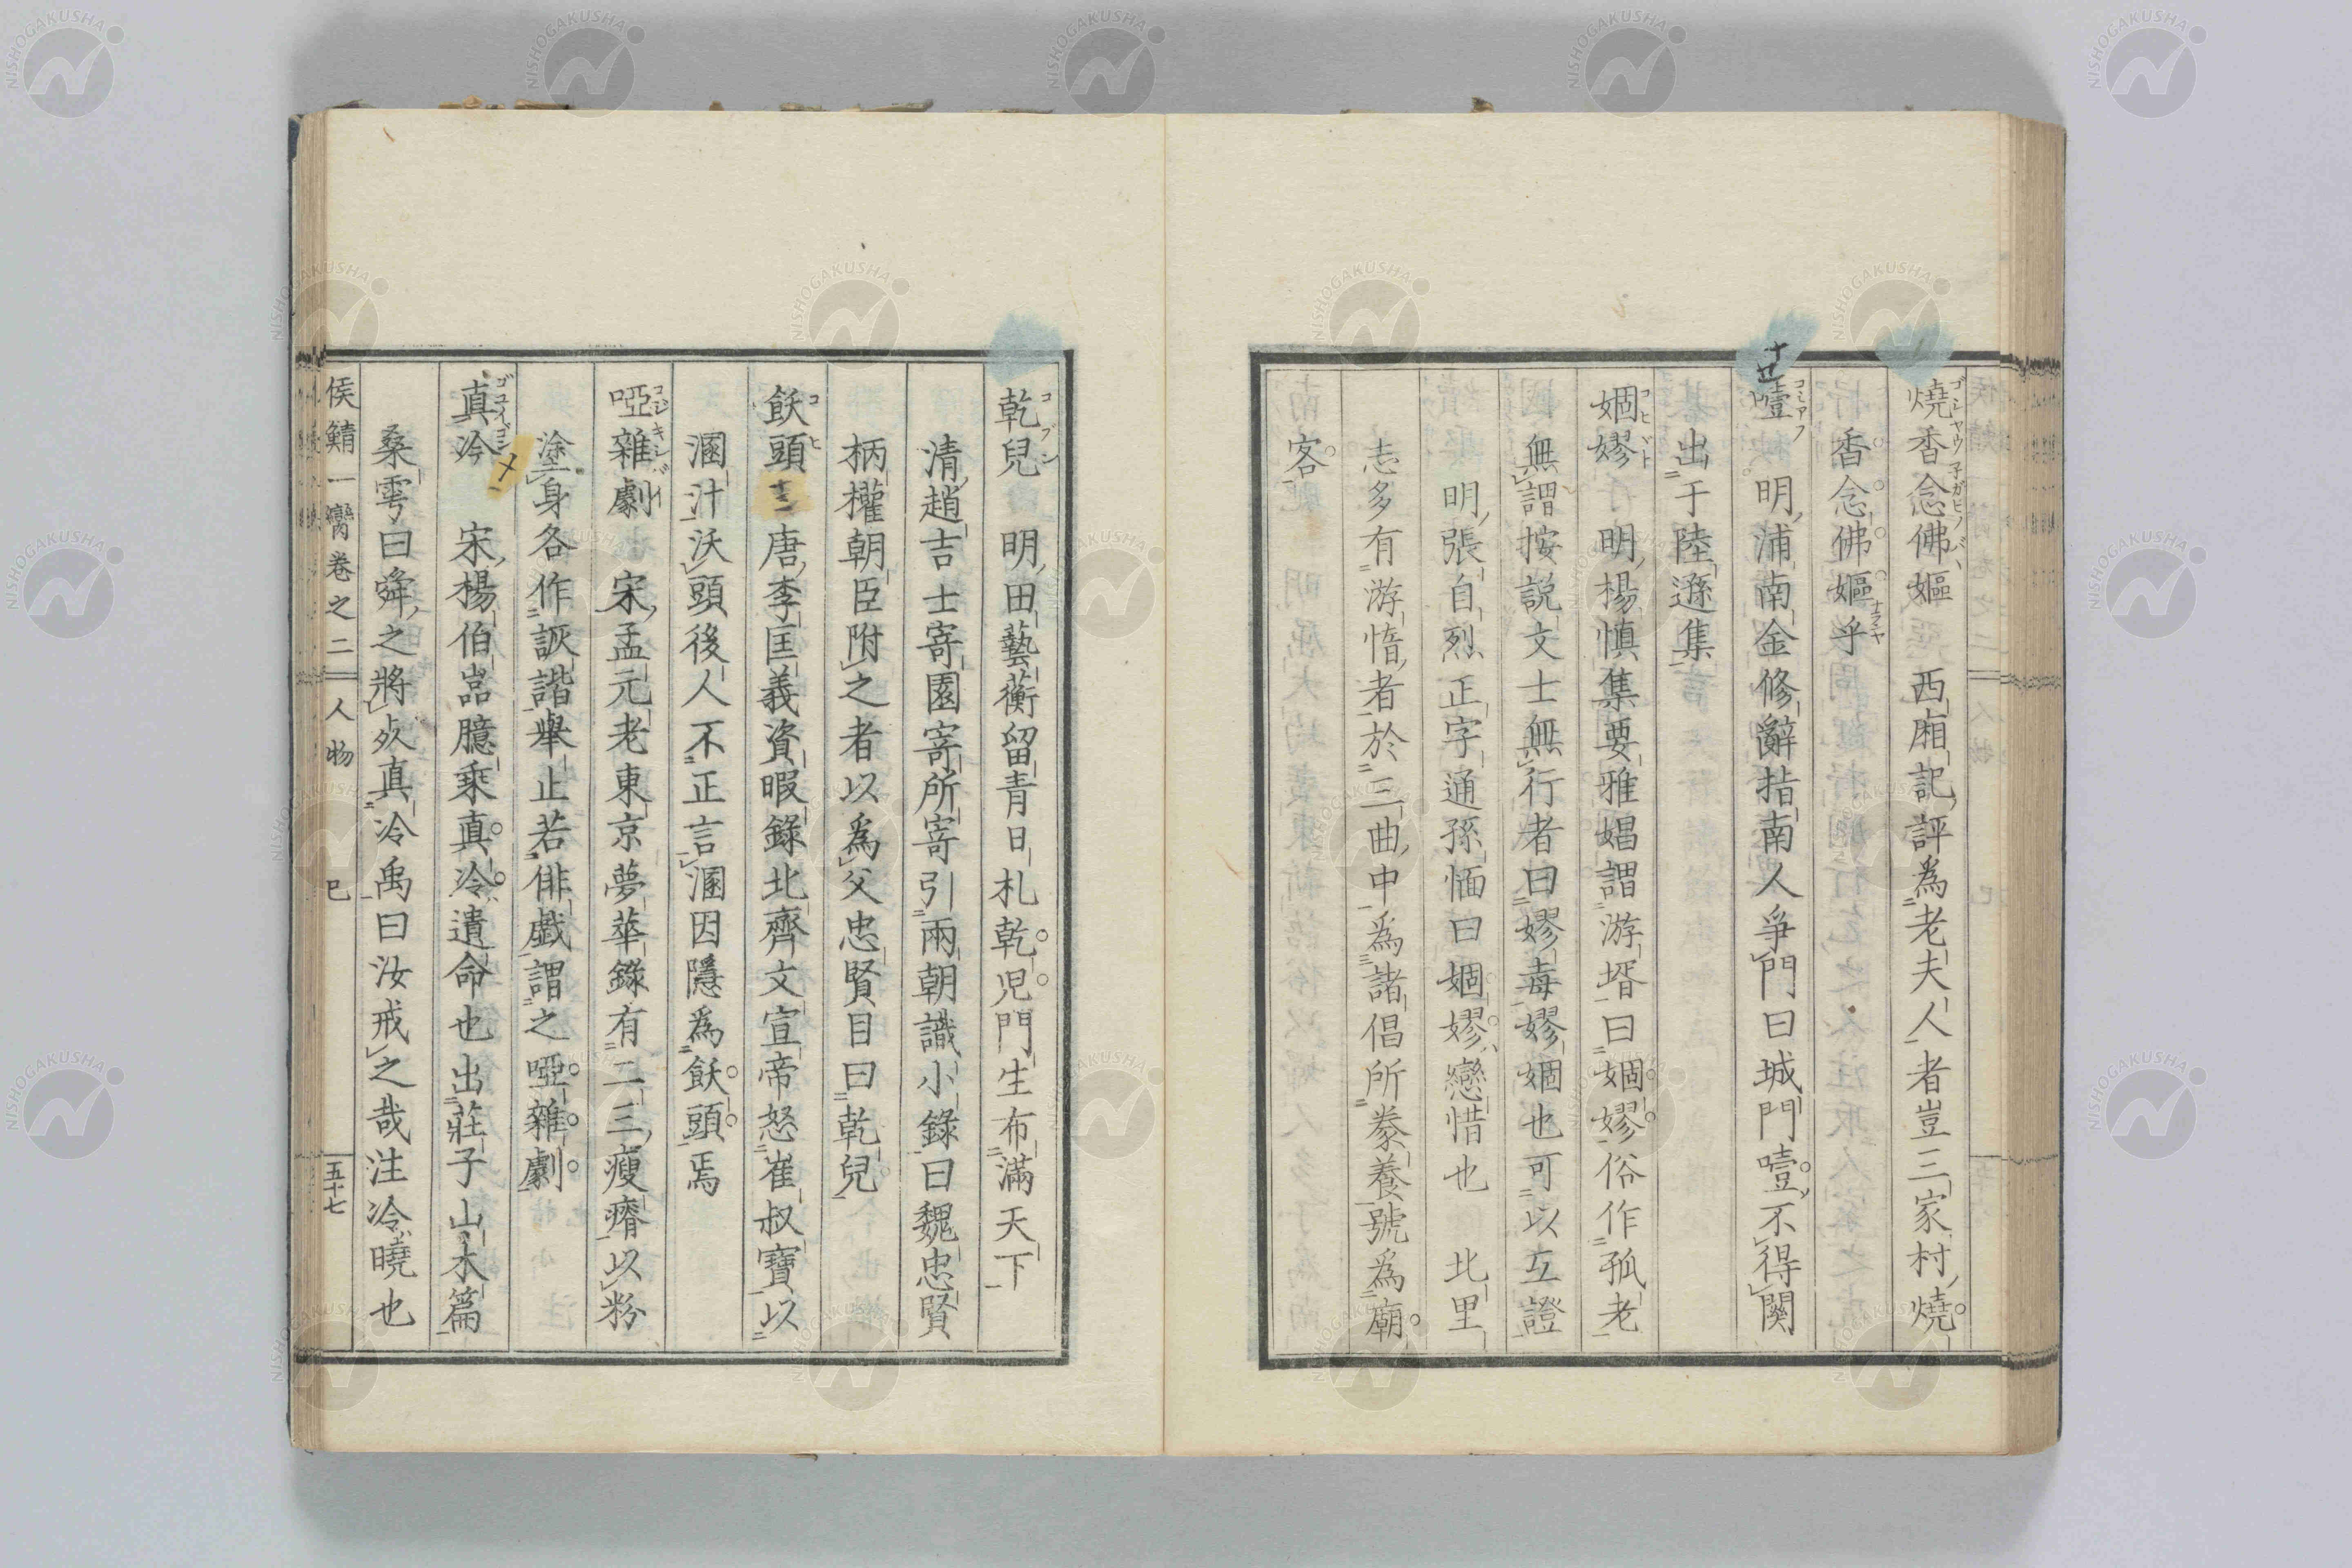 燒香念佛嫗 西廂記評為老夫人者豈三家村燒
香念佛嫗乎
噎 明浦南金修辭指南人爭門曰城門噎不得關
出于陸遜集
婟嫪 明楊慎集要雅娼謂游壻曰婟嫪俗作孤老
無謂按説文士無行者曰嫪毐嫪婟也可以互證
明張自烈正字通孫愐曰婟嫪戀惜也 北里
志多有游惰者於三曲中為諸倡所豢養號為廟
客
乾兒 明田藝蘅留青日札乾児門生布滿天下
清趙吉士寄園寄所寄引兩朝識小錄曰魏忠賢
柄權朝臣附之者以為父忠賢目曰乾兒
飫頭 唐李匡義資暇錄北齊文宣帝怒崔叔寶以
溷汁沃頭後人不正言溷因隱為飫頭焉
啞雜劇 宋孟元老東京夢華錄有二三瘦瘠以粉
塗身各作詼諧舉止若俳戯謂之啞雜劇
真泠 宋楊伯嵓臆乘真泠遺命也出莊子山木篇
桑雩曰舜之將死真泠禹曰汝戒之哉注泠曉也
侯鯖一臠卷之二 人物 巳 五十七
NISHOGAKUSHA